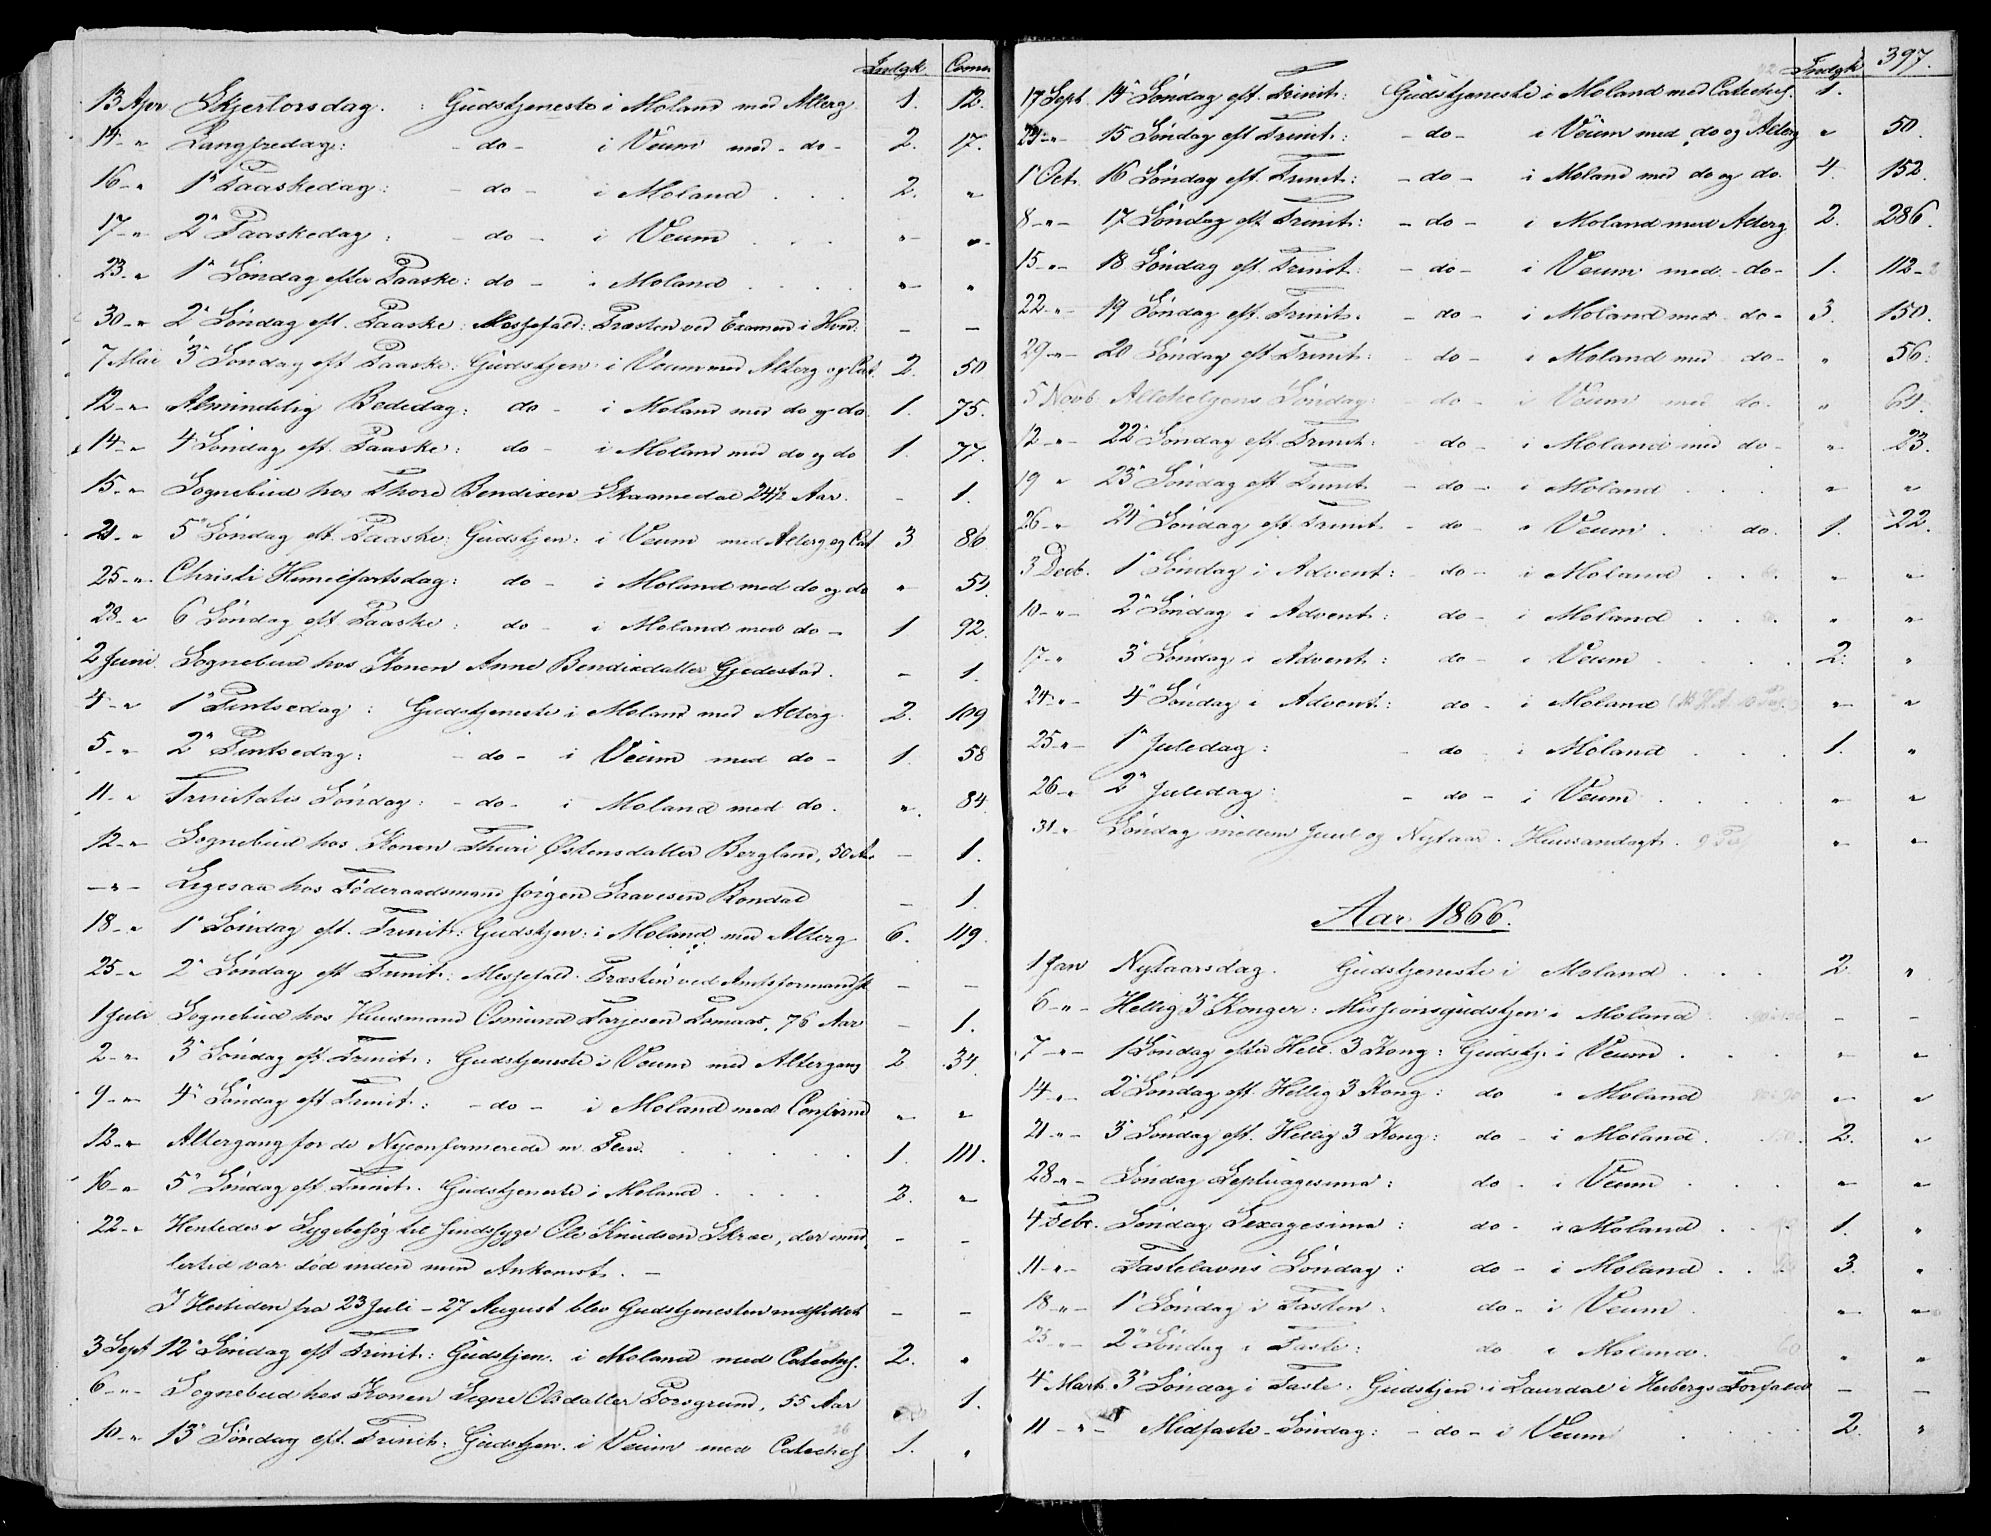 Indgk. Comm
13 Apr Skjertorsdag. : Gudstjeneste i Moland med Alterg. 1. 12.
14 - " Langfredag: - do - i Veum med - do - 2. 17.
16 - " 1ste Paaskedag: - do - i Moland . . . 2. "
17 - " 2den Paaskedag: - do - i Veum . . . " "
23 - " 1ste Søndag efter Paaske: do - i Moland . . . . " "
30 - " 2den Søndag eft. Paaske: Messefald: Præsten ved Examen i Hvid: - -
7 Mai 3die Søndag eft Paaske: Gudstjen: i Veum med Alterg og Cat. 2. 50
12 - " Almindelig Bededag: do - i Moland med do og do 1. 75.
14 - " 4 Søndag eft. Paaske: do - i Moland med do og do 1. 77.
15 - " Sognebud hos Thore Bendixen Skaamedal 24½ Aar. - 1.
21 - " 5te Søndag eft. Paaske: Gudstjen: i Veum med Alterg og Cat 3 86
25 - " Christi Himelfartsdag: do - i Moland med do og do " 54.
28 - " 6 Søndag eft Paaske: do - i Moland med do - 1 92.
2 Juni Sognebud hos Konen Anne Bendixdatter Gjedestad. - 1.
4 - " 1ste Pintsedag: Gudstjeneste i Moland med Alterg. 2. 109
5 - " 2den Pintsedag: - do - i Veum med do - 1. 58
11 - " Trinitatis Søndag: - do - i Moland med do. " 84.
12 - " Sognebud hos Konen Thuri Østensdatter Bergland, 50 Aar - 1.
- " - Ligesaa hos Föderaadsmand Jørgen Saavesen Rondal - 1.
18 - " 1ste Søndag eft. Trinit: Gudstjen: i Moland med Alterg 6. 119.
25 - " 2den Søndag eft Trinit: Messefald. Præsten ved Amtsformandsk - -
1 Juli Sognebud hos Huusmand Osmund Tarjesen Tomaas, 76 Aar - 1.
2 - " 3die Søndag eft. Trinit: Gudstjeneste i Veum med Altergang 2 34.
9 - " 4de Søndag eft Trinit: - do - i Moland med Confirm " "
12 - " Altergang for de Nyconfirmerede m. Flere. . . . . . 1. 111.
16 - " 5te Søndag eft Trinit. Gudstjeneste i Moland . . . . 2. "
22 - " Hentedes i Sygebesøg til sindssyge Ole Knudsen Skree, der imid- - -
lertid var død inden min Ankomst. -
I Høstiden fra 23 Juli - 27 August blev Gudstjenesten indstillet - -
3 Sept 12te Søndag eft Trinit: Gudstjen. i Moland med Catechs. 2. "
6 - " Sognebud hos Konen Signe Olsdatter Porsgrund, 55 Aar 1.
10 - " 13de Søndag eft. Trinit: Gudstjen. i Veum med Catechs 1. "
Indgk 397.
17 Sept. 14de Søndag eft. Trinit: Gudstjeneste i Moland med Catechs. 1.
24 - " 15 Søndag eft Trinit: - do - i Veum med do og Alterg " 50.
1 Oct. 16 Søndag eft. Trinit: - do - i Moland med do og do. 4. 152.
8 - " - 17 Søndag eft Trinit: - do - i Moland med Alterg. 2. 286.
15 - " - 18 Søndag eft. Trinit: - do - i Veum med - do - 1. 112
22 - " - 19 Søndag eft. Trinit: - do - i Moland med - do - 3. 150.
29 - " - 20 Søndag eft Trinit: - do - i Moland med do - " 56.
5 Novb. Allehelgens Søndag: - do - i Veum med do. " 64.
12 - " - 22 Søndag eft. Trinit: do - i Moland med do - " 23.
19 " 23de Søndag eft Trinit - do - i Moland . . . " "
26 - " 24de Søndag eft. Trinit. - do - i Veum . do. 1. 22.
3 Decb. 1ste Søndag i Advent: - do - i Moland . . . " "
10 - " - 2den Søndag i Advent: do - i Moland . . . " "
17 - " 3die Søndag i Advent: do - i Veum . . . . 2. "
24 - " 4de Søndag i Advent: do - i Moland " "
25 - " - 1ste Juledag: - do - i Moland . . . 1. "
26 - " 2den Juledag: - do - i Veum . . . . " "
31 - " Søndag mellem Juul og Nytaar. Huusandagt. " "
Aar 1866.
1 Jan Nytaarsdag. Gudstjeneste i Moland . . . 2. "
6 - " - Hellig 3 Konger: Missionsgudstjen i Moland - -
7 - " - 1 Søndag efter Hell. 3 Kong: Gudstj. i Veum . . . " "
14 - " 2den Søndag eft. Hellig 3 Kong: do " Moland " "
21 - " - 3die Søndag eft. Hellig 3 Kong: do - i Moland. 2. "
28 - " - Søndag Septuagesima: do - i Veum . . . " "
4 Febr. Søndag Sexagesima: do - i Moland . . 1. "
11 - " - Fastelavns Søndag: do - i Moland . . . 3. "
18 - " - 1ste Søndag i Fasten: do - i Veum . " "
25 - " - 2den Søndag i Faste: do i Moland. 60 " "
4 Marts 3die Søndag i Faste: Gudstjen. i Laurdal i Herbergs Forfald - -
11 - " - Midfaste-Søndag: - do - i Veum . . . . 2. "